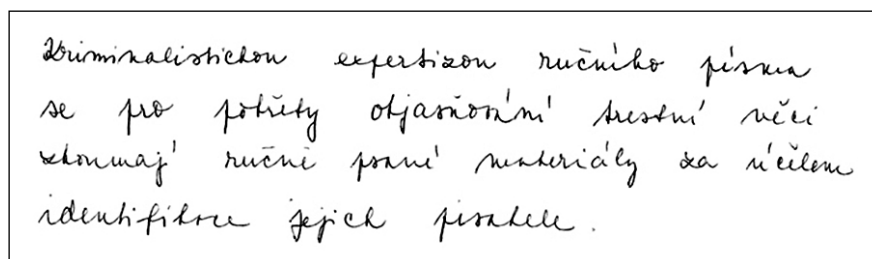 Kriminalistickou expertizou ručního písma
se pro potřeby objasňování trestní věci
zkoumají ručně psané materiály za účelem
identifikace jejich pisatele.